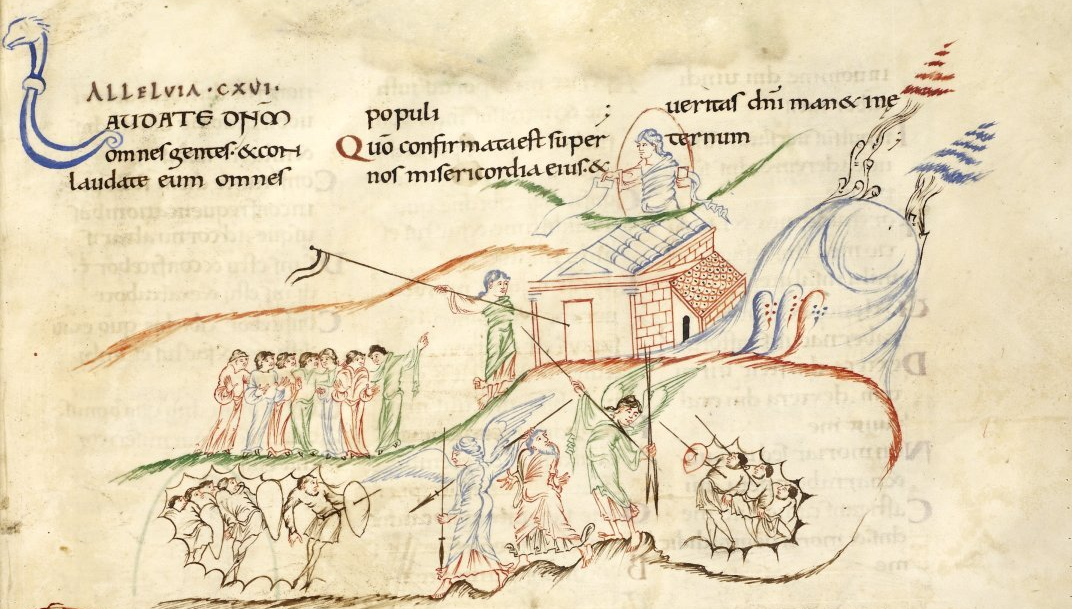 ALLELVIA · CXVI ·
LAUDATE DNM̄
omnes gentes · & con
laudate eum omnes
populi ;
Quo confirmata est super
nos misericordia eius · &
ueritas dn̄i man& in e
ternum